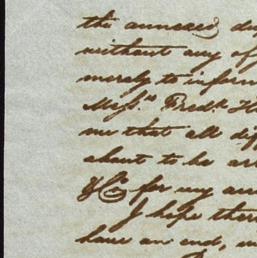 the annexed du
without any of
merely to inform
Mess.rs Fred.k H
me that all diff
about to be ar
& Co for my acc
I hope ther
have an end,